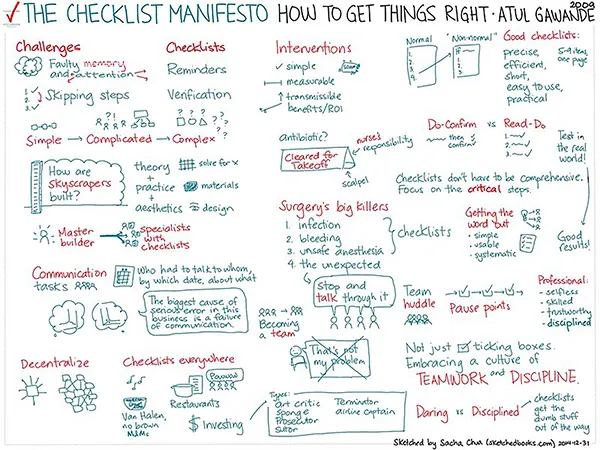 THE CHECKLIST MANIFESTO HOW TO GET THINGS RIGHT · ATUL GAWANDE
2009
Challenges
Faulty memory
and attention
Skipping steps
1
2
3
Simple → Complicated → Complex
Checklists
Reminders
Verification
Interventions
simple
SOAP
measurable
transmissible
benefits/ROI
Normal
1.
2.
3.
4.
"Non-normal"
1.
2.
3.
Good checklists:
precise,
efficient,
short,
easy to use,
practical
5-9 items,
one page
How are
skyscrapers
built?
theory
+
practice
+
aesthetics
solve for x
materials
design
antibiotic?
Cleared for
Takeoff
nurse's
responsibility
scalpel
Do-Confirm vs Read-Do
then
confirm
1.
2.
3.
Test in
the real
world!
Checklists don't have to be comprehensive.
Focus on the critical steps.
Master
builder
Specialists
with
checklists
Surgery's big killers
1. infection
2. bleeding
3. unsafe anesthesia
4. the unexpected
checklists
Getting the
word out
- simple
- usable
- systematic
Good
results!
Communication
tasks
Who had to talk to whom,
by which date, about what
The biggest cause of
serious error in this
business is a failure
of communication.
Stop and
talk through it
Becoming
a team
Team
huddle
Pause points
Professional:
- selfless
- skilled
- trustworthy
- disciplined
That's not
my problem
Not just ticking boxes.
Embracing a culture of
TEAMWORK and DISCIPLINE.
Decentralize
Checklists everywhere
Van Halen,
no brown
M&Ms
Restaurants
$ Investing
Types:
Art critic
Sponge
Prosecutor
Suitor
Terminator
Airline captain
Daring vs Disciplined
checklists
get the
dumb stuff
out of the way
Sketched by Sacha Chua (sketchedbooks.com) 2014-12-31